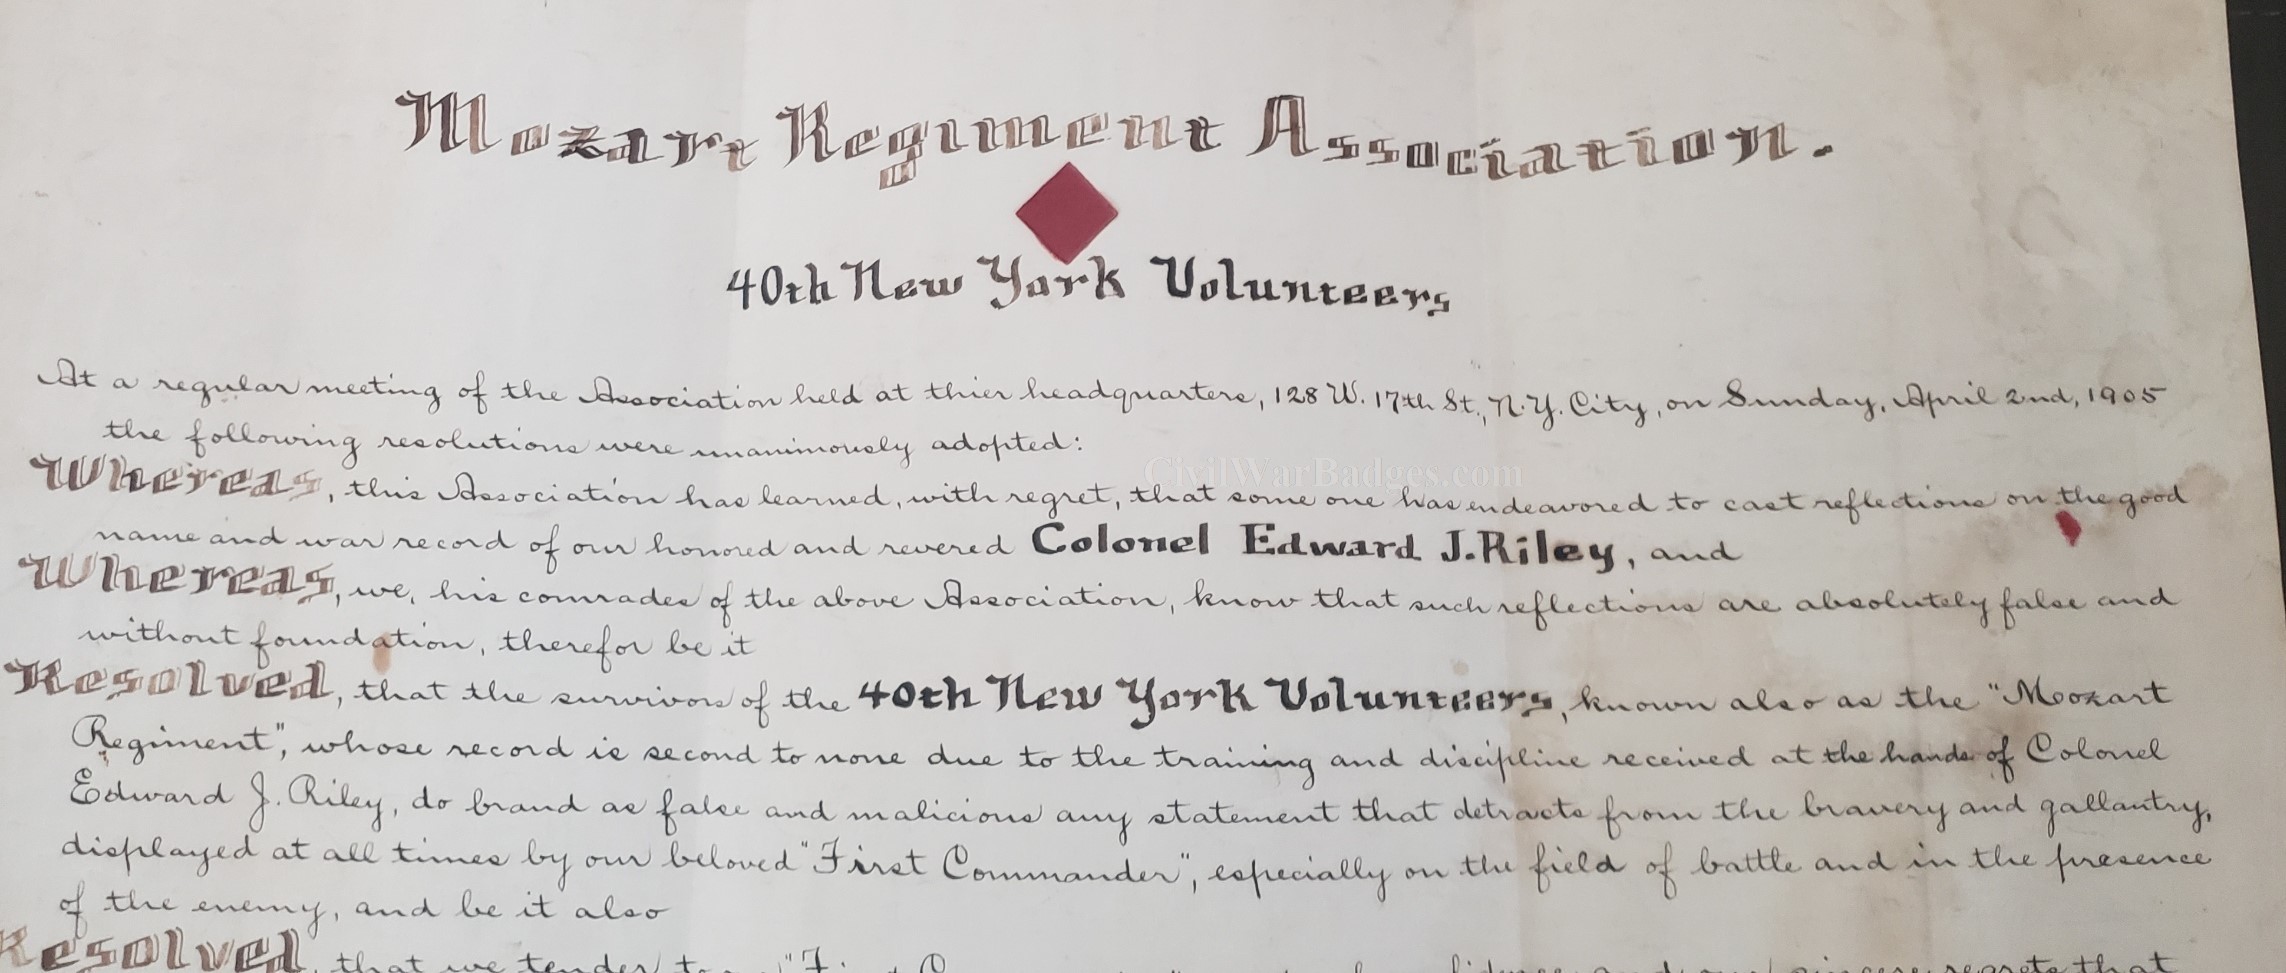 Mozart Regiment Association.
40th New York Volunteers
At a regular meeting of the Association held at thier headquarters, 128 W. 17th St., N.Y. City, on Sunday, April 2nd, 1905
the following resolutions were unanimously adopted:
CivilWarBadges.com
Whereas, this Association has learned, with regret, that some one has endeavored to cast reflections on the good
name and war record of our honored and revered Colonel Edward J. Riley, and
Whereas, we, his comrades of the above Association, know that such reflections are absolutely false and
without foundation, therefor be it
Resolved, that the survivors of the 40th New York Volunteers, known also as the "Mozart
Regiment", whose record is second to none due to the training and discipline received at the hands of Colonel
Edward J. Riley, do brand as false and malicious any statement that detracts from the bravery and gallantry,
displayed at all times by our beloved "First Commander", especially on the field of battle and in the presence
of the enemy, and be it also
Resolved, that we tender to sincere regrets that